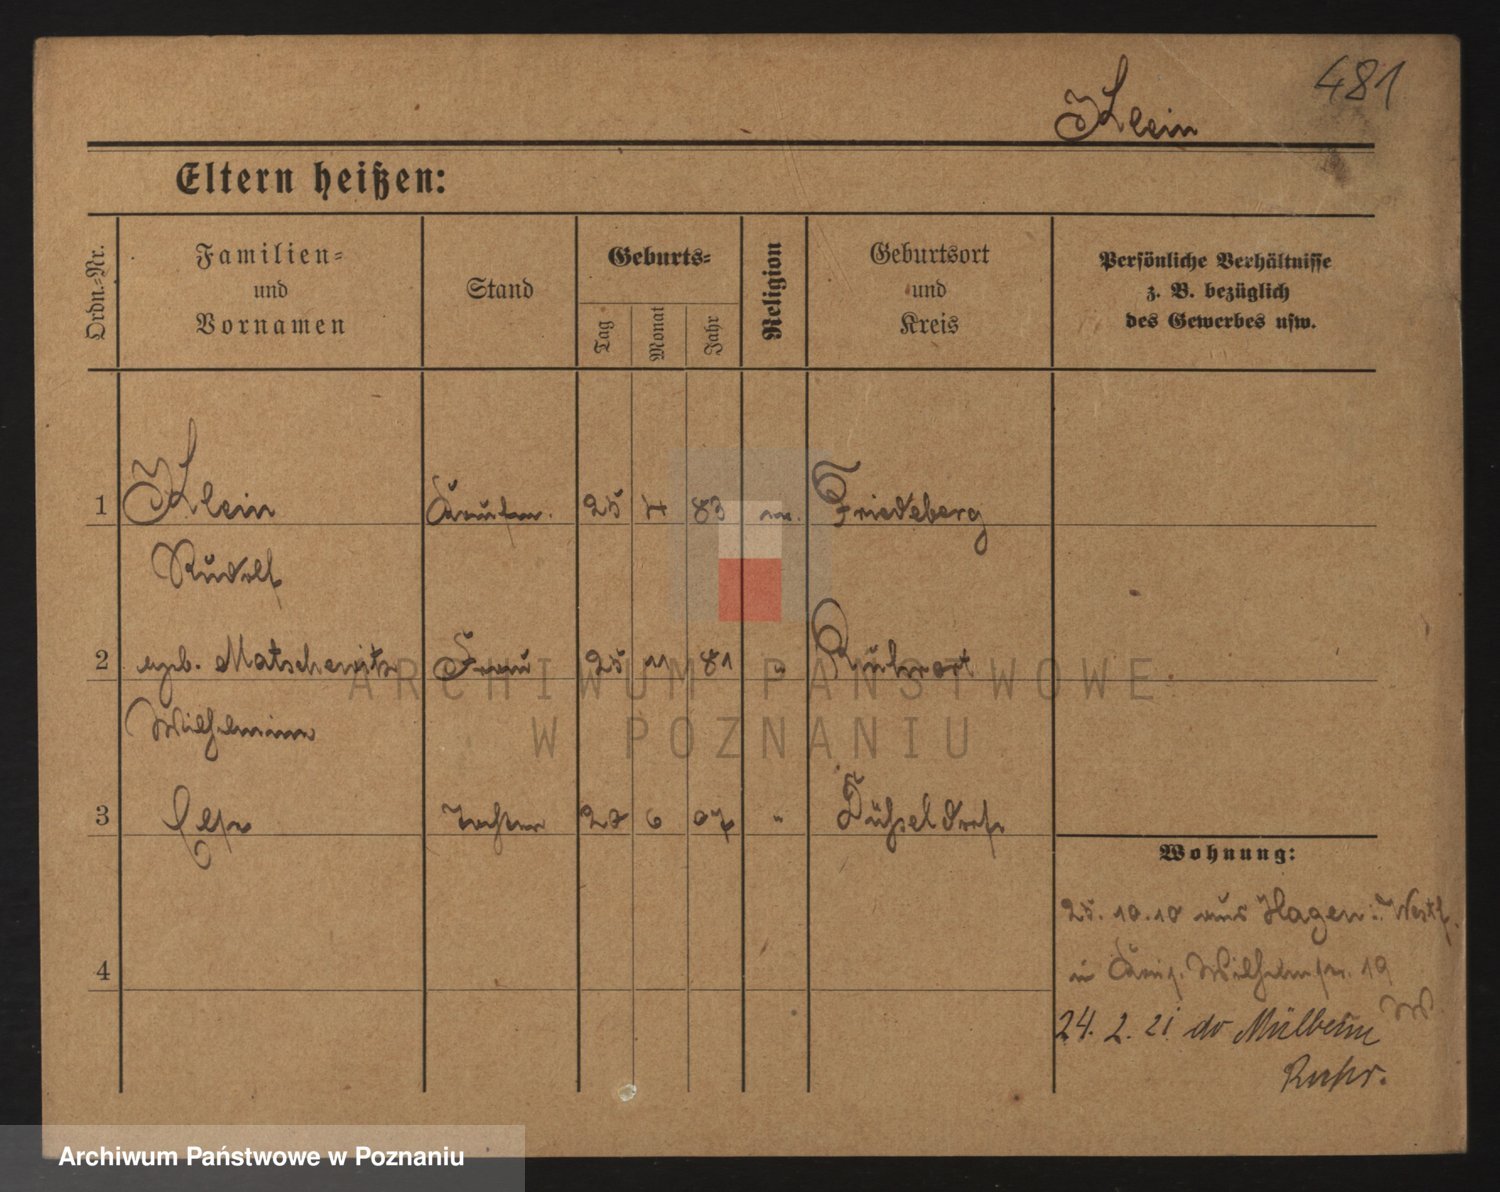 481
Klein
Eltern heißen:
Ordn.-Nr.
Familien-
und
Vornamen
Stand
Geburts-
Tag
Monat
Jahr
Religion
Geburtsort
und
Kreis
Persönliche Verhältnisse
z. B. bezüglich
des Gewerbes usw.
1 Klein 25 83 Friedeberg
Rudolf
2 geb. Frau 25 11 81 " Ruhrort
Wilhelmine
3 Else Tochter 6 07 " Düsseldorf
4
Wohnung:
25.10.10 aus Hagen i. Westf.
Wilhelmstr. 19
24. 2. 21
Ruhr.
ARCHIWUM PAŃSTWOWE
W POZNANIU
Archiwum Państwowe w Poznaniu